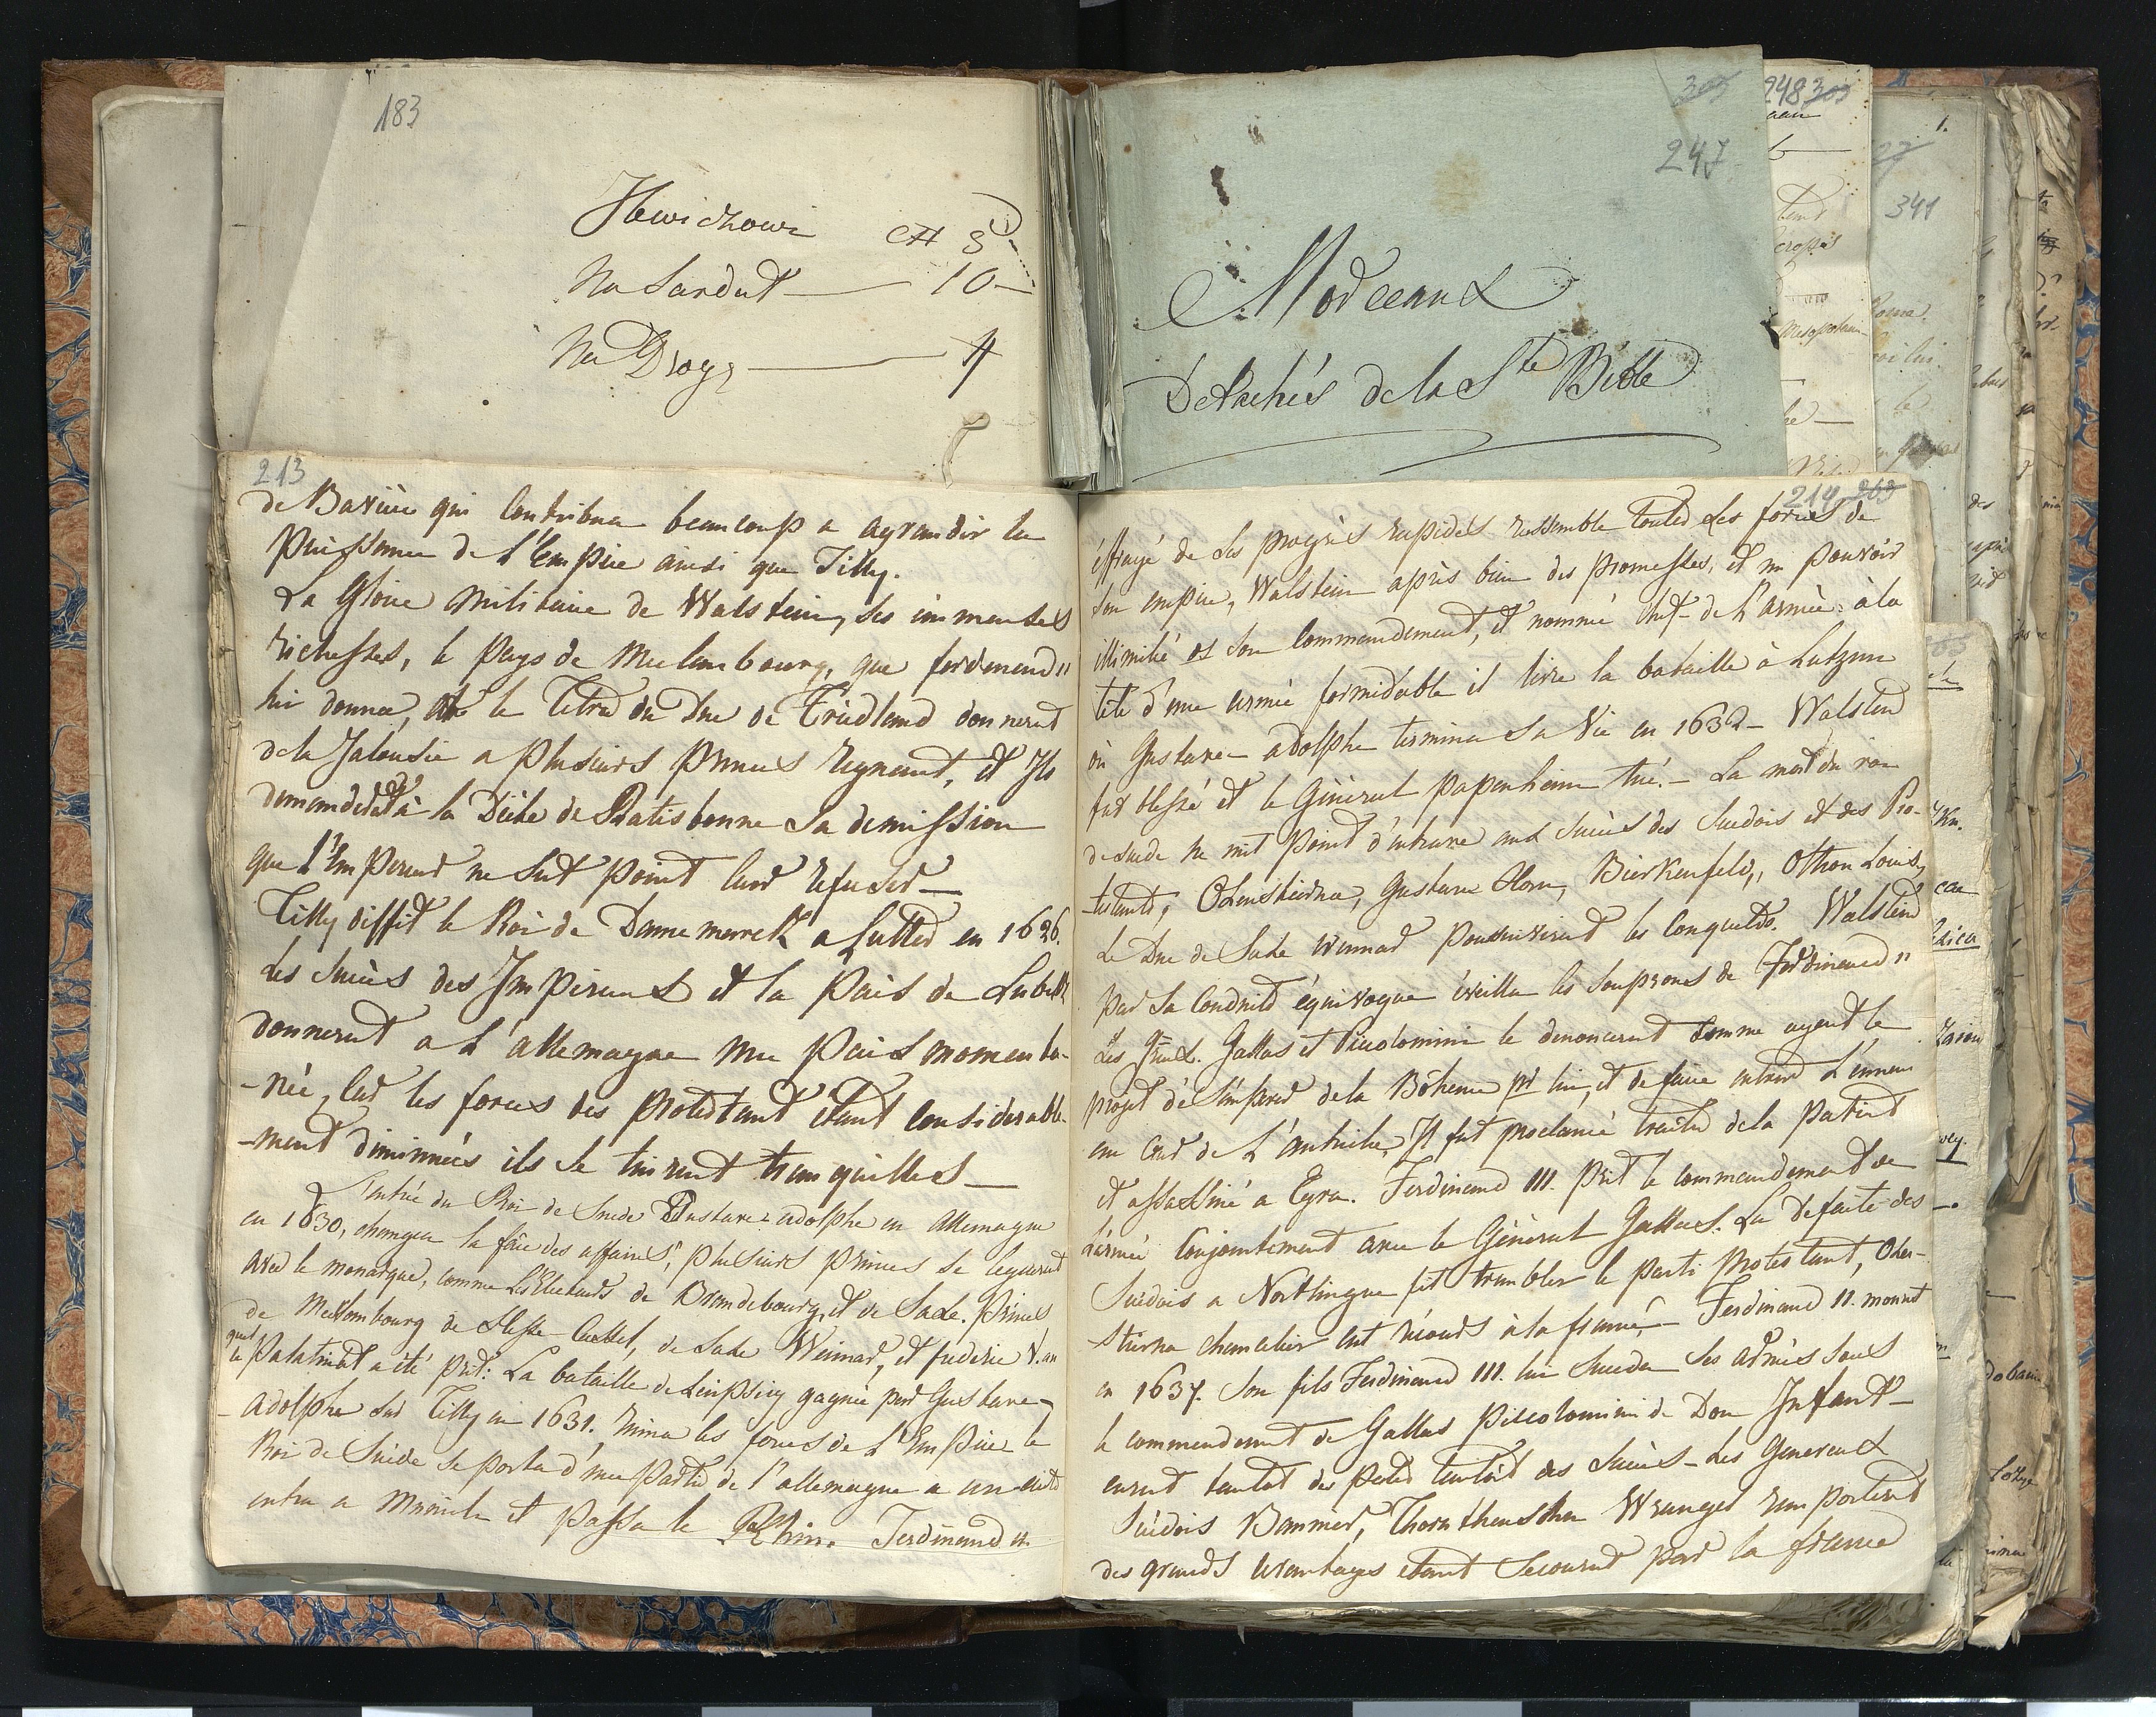 183
Na Sardut — 10 —
Na Drogę — 4
305
247
Morceaux
Détachés de la Ste Bible
248 305
341
213
de Baviere qui Contribua beaucoup a agrandir la
Puissance de L'Empire ainsi que Tilly.
La Gloire Militaire de Walstein, ses immenses
richesses, le Pays de Meclembourg, que ferdinand II
lui donna, et le Titre du Duc de Friedland donnerent
de la Jalousie a plusieurs Princes regnant, et Ils
demanderent à la Diète de Ratisbonne sa demission
que l'Empereur ne sut point leur refuser —
Tilly diffit le Roi de Dannemarck a Lutter en 1626.
Les succès des Imperiaux et la Paix de Lubeck
donnerent a L'allemagne une Paix momenta-
-née, car les forces des Protestant étant considerable-
-ment diminuées ils se tinrent tranquilles —
L'entrée du Roi de Suede Gustave-adolphe en Allemagne
en 1630, changea la face des affaires, plusieurs Princes se liguerent
avec le monarque, comme L'Electeurs de Brandebourg, et de Saxe. Princes
de Meklembourg de Hesse-Cassel, de Saxe Weimar, et frederic V. au
quel
le Palatinat a été pris: La bataille de Leipsig gagnée par Gustave-
-Adolphe sur Tilly en 1631. mina les forces de L'Empire le
Roi de Suède se porta d'une Partie de l'allemagne a un autre
entra a Munich et passa le Rhin. Ferdinand II
214 263
éffrayé de ses progrès rapides rassemble toutes les forces de
son empire, Walstein après bien des promesses, et un pouvoir
illimité et son Commandement, est nommé chef de L'armée: à la
tête d'une armée formidable il livre la bataille à Lutzen
où Gustave-adolphe termina sa Vie en 1632 — Walstein
fut blessé et le Général Papenheim tué. — La mort du roi
de suede ne mit Point d'entrave aux succès des Suedois et des Pro-
-testants, Oxenstierna, Gustave Horn, Birkenfeld, Othon Louis,
Le Duc de Saxe Weimar poursuivirent les conquetes. Walstein
par sa Conduite équivoque éveilla les soupçons de Ferdinand II
Les Gnx. Gallas et Piccolomini le denoncerent comme ayent le
projet de s'emparer de la Bôheme pr lui, et de faire entrer L'ennemi
au Cœur de L'autriche, Il fut proclamé traitre de la Patrie
et assassiné a Egra. Ferdinand III. Prit le commandement de
L'armée Conjointement avec le Général Gallas. La Defaite des
Suedois a Nortlingue fit trembler le parti Protestant, Oxen-
-stierna chancelier eut récours à la france — Ferdinand II. mourut
en 1637. Son fils Ferdinand III. lui succeda ses armées sous
le commendement de Gallas Piccolomini de Don Infant —
eurent tantot des pertes tantôt des succès — Les Generaux
Suédois Banner, Wrangel remporterent
des grands avantages étant secouru par la france